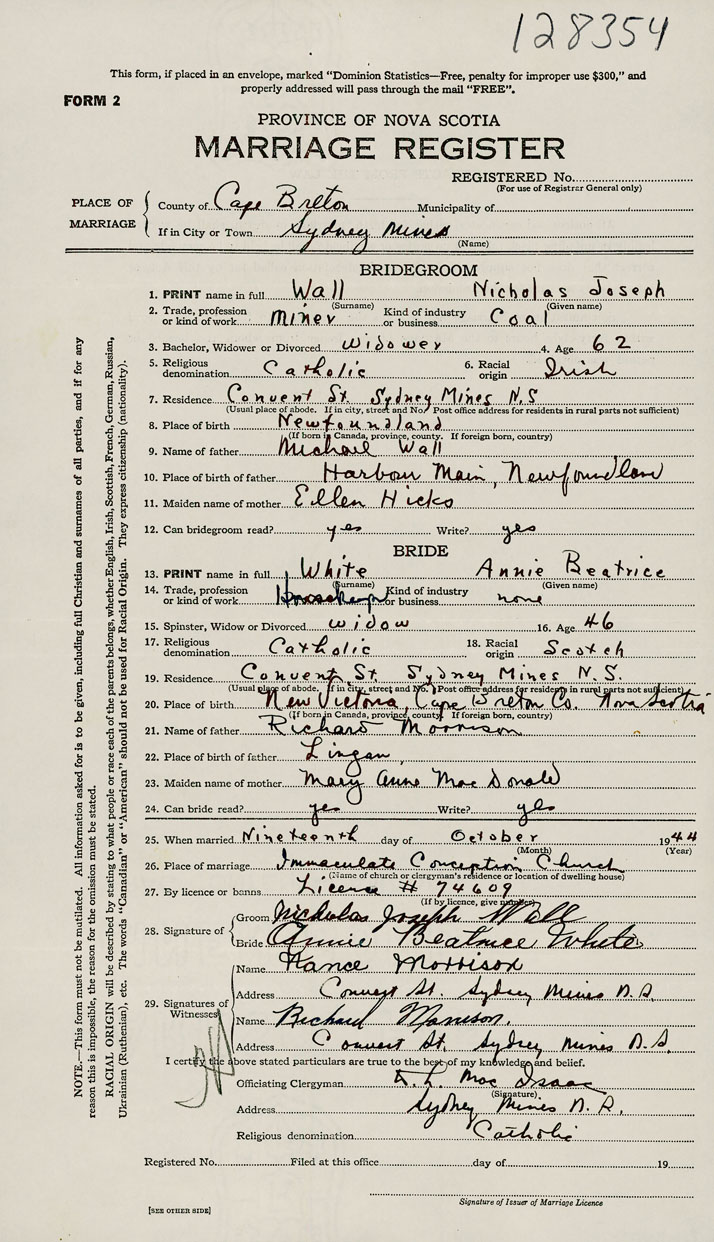 128354
This form, if placed in an envelope, marked "Dominion Statistics—Free, penalty for improper use $300," and
properly addressed will pass through the mail "FREE".
FORM 2
PROVINCE OF NOVA SCOTIA
MARRIAGE REGISTER
REGISTERED No.
(For use of Registrar General only)
PLACE OF MARRIAGE
County of Cape Breton Municipality of
If in City or Town Sydney Mines
(Name)
BRIDEGROOM
1. PRINT name in full Wall Nicholas Joseph
(Surname) (Given name)
2. Trade, profession or kind of work Miner Kind of industry or business Coal
3. Bachelor, Widower or Divorced Widower 4. Age 62
5. Religious denomination Catholic 6. Racial origin Irish
7. Residence Convent St. Sydney Mines N.S
(Usual place of abode. If in city, street and No. Post office address for residents in rural parts not sufficient)
8. Place of birth Newfoundland
(If born in Canada, province, county. If foreign born, country)
9. Name of father Michael Wall
10. Place of birth of father Harbour Main, Newfoundland
11. Maiden name of mother Ellen Hicks
12. Can bridegroom read? yes Write? yes
BRIDE
13. PRINT name in full White Annie Beatrice
(Surname) (Given name)
14. Trade, profession or kind of work Housekeeper Kind of industry or business none
15. Spinster, Widow or Divorced widow 16. Age 46
17. Religious denomination Catholic 18. Racial origin Scotch
19. Residence Convent St. Sydney Mines N.S.
(Usual place of abode. If in city, street and No. Post office address for residents in rural parts not sufficient)
20. Place of birth New Victoria, Cape Breton Co. Nova Scotia
(If born in Canada, province, county. If foreign born, country)
21. Name of father Richard Morrison
22. Place of birth of father Lingan
23. Maiden name of mother Mary Anne MacDonald
24. Can bride read? yes Write? yes
25. When married Nineteenth day of October 1944
(Month) (Year)
26. Place of marriage Immaculate Conception Church
(Name of church or clergyman's residence or location of dwelling house)
27. By licence or banns License # 74609
(If by licence, give number)
28. Signature of
Groom Nicholas Joseph Wall
Bride Annie Beatrice White
29. Signatures of Witnesses
Name Nance Morrison
Address Convent St. Sydney Mines N.S.
Name Richard Morrison.
Address Convent St. Sydney Mines N.S.
I certify the above stated particulars are true to the best of my knowledge and belief.
Officiating Clergyman R. L. MacIsaac
(Signature)
Address Sydney Mines N.S.
Religious denomination Catholic
Registered No. Filed at this office day of 19
Signature of Issuer of Marriage Licence
[SEE OTHER SIDE]
NOTE.—This form must not be mutilated. All information asked for is to be given, including full Christian and surnames of all parties, and if for any
reason this is impossible, the reason for the omission must be stated.
RACIAL ORIGIN will be described by stating to what people or race each of the parents belongs, whether English, Irish, Scottish, French, German, Russian,
Ukrainian (Ruthenian), etc. The words "Canadian" or "American" should not be used for Racial Origin. They express citizenship (nationality).